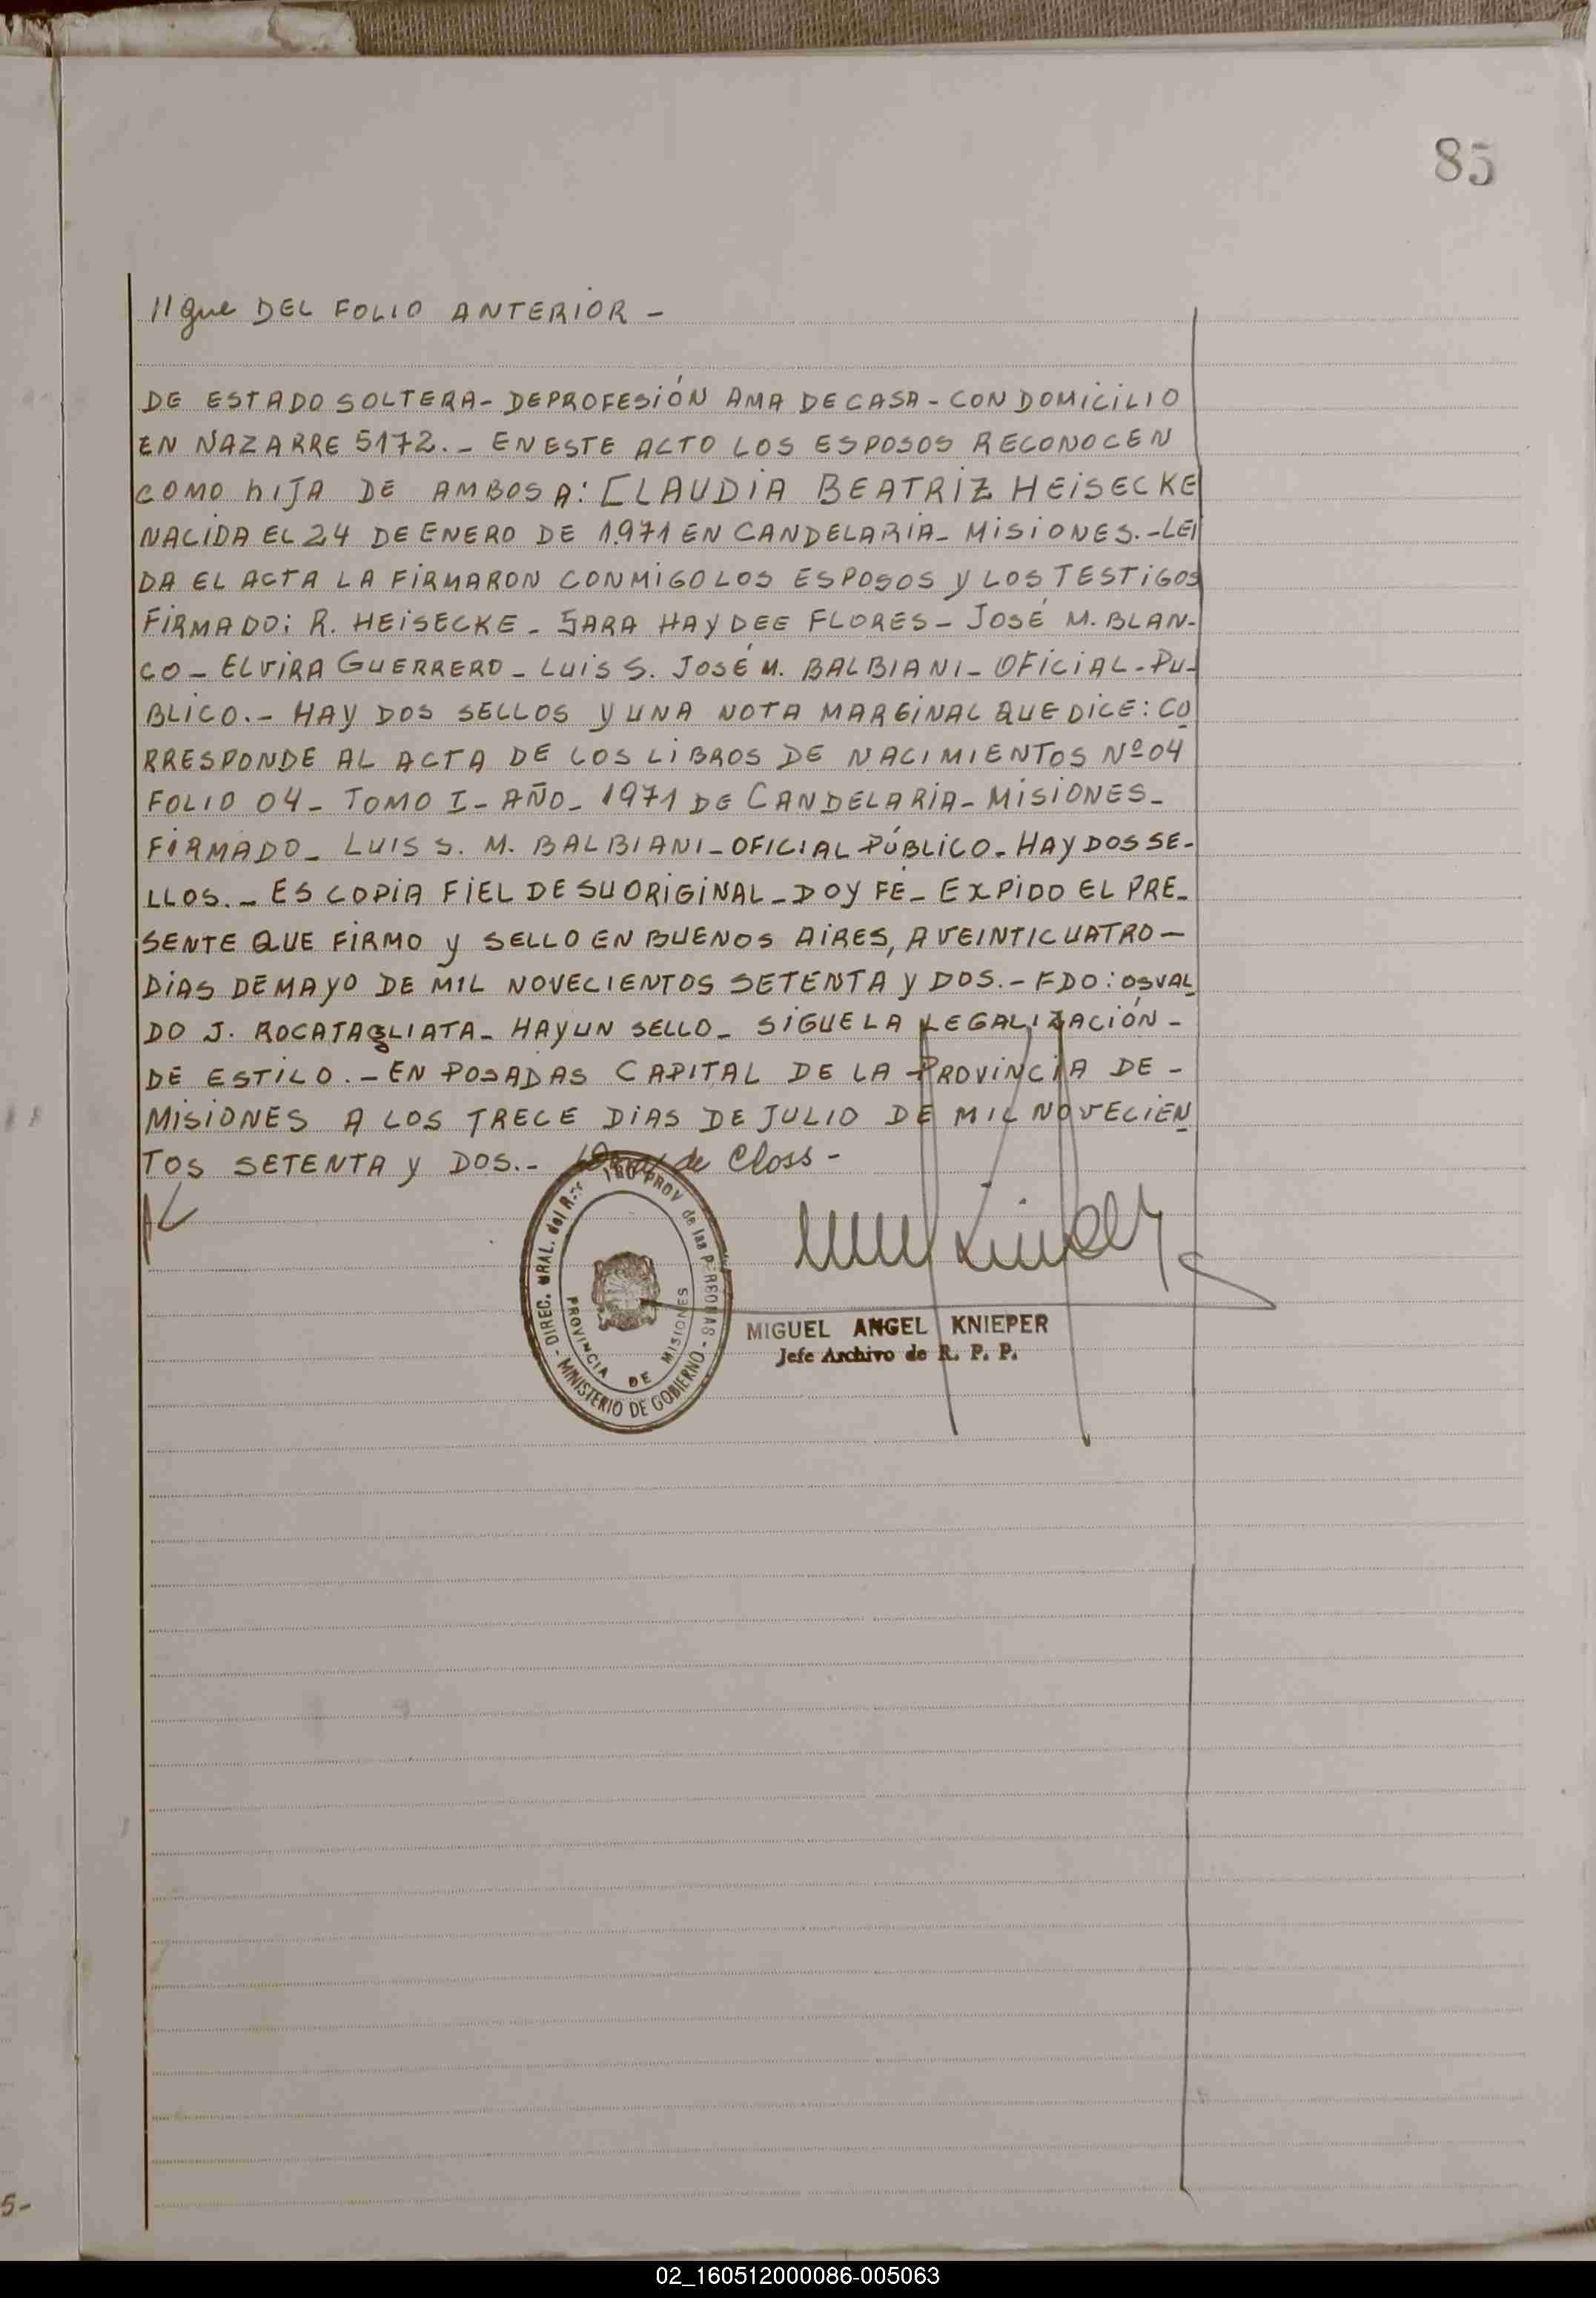 85
//gue DEL FOLIO ANTERIOR -
DE ESTADO SOLTERA - DE PROFESIÓN AMA DE CASA - CON DOMICILIO
EN NAZARRE 5172. - EN ESTE ACTO LOS ESPOSOS RECONOCEN
COMO HIJA DE AMBOS A: CLAUDIA BEATRIZ HEISECKE
NACIDA EL 24 DE ENERO DE 1.971 EN CANDELARIA - MISIONES. - LEI
DA EL ACTA LA FIRMARON CONMIGO LOS ESPOSOS Y LOS TESTIGOS
FIRMADO: R. HEISECKE - SARA HAYDEE FLORES - JOSÉ M. BLAN-
CO - ELVIRA GUERRERO - LUIS S. JOSÉ M. BALBIANI - OFICIAL - PU-
BLICO. - HAY DOS SELLOS Y UNA NOTA MARGINAL QUE DICE: CO
RRESPONDE AL ACTA DE LOS LIBROS DE NACIMIENTOS Nº 04
FOLIO 04 - TOMO I - AÑO - 1971 DE CANDELARIA - MISIONES -
FIRMADO - LUIS S. M. BALBIANI - OFICIAL PÚBLICO - HAY DOS SE-
LLOS. - ES COPIA FIEL DE SU ORIGINAL - DOY FÉ - EXPIDO EL PRE-
SENTE QUE FIRMO Y SELLO EN BUENOS AIRES, A VEINTICUATRO -
DIAS DE MAYO DE MIL NOVECIENTOS SETENTA Y DOS. - FDO: OSVAL
DO J. ROCATAGLIATA - HAY UN SELLO - SIGUE LA LEGALIZACIÓN -
DE ESTILO. - EN POSADAS CAPITAL DE LA PROVINCIA DE -
MISIONES A LOS TRECE DIAS DE JULIO DE MIL NOVECIEN
TOS SETENTA Y DOS. - de Closs -
DIREC. GRAL. del PROV de las PERSONAS - MINISTERIO DE GOBIERNO -
PROVINCIA DE MISIONES
MIGUEL ANGEL KNIEPER
Jefe Archivo de R. P. P.
5-
02_160512000086-005063